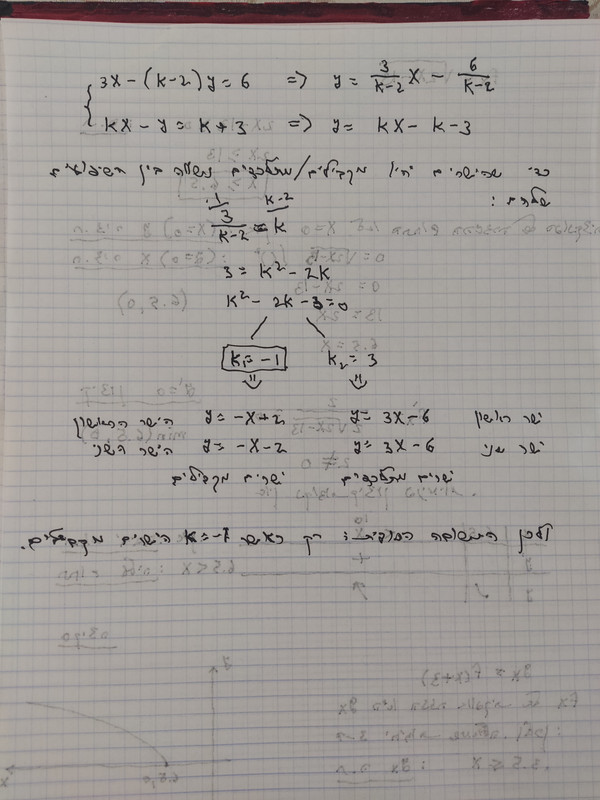 3x-(k-2)y=6 => y= 3/(k-2) x - 6/(k-2)
kx-y=k+3 => y= kx-k-3
כדי שהישרים יהיו מקבילים/מתלכדים נשווה בין השיפועים
שלהם:
3/(k-2) = k
3=k²-2k
k²-2k-3=0
k₁=-1 k₂=3
הישר הראשון y=-x+2 y=3x-6 ישר ראשון
הישר השני y=-x-2 y=3x-6 ישר שני
ישרים מקבילים ישרים מתלכדים
ולכן התשובה הסופית: רק כאשר k=-1 הישרים מקבילים.